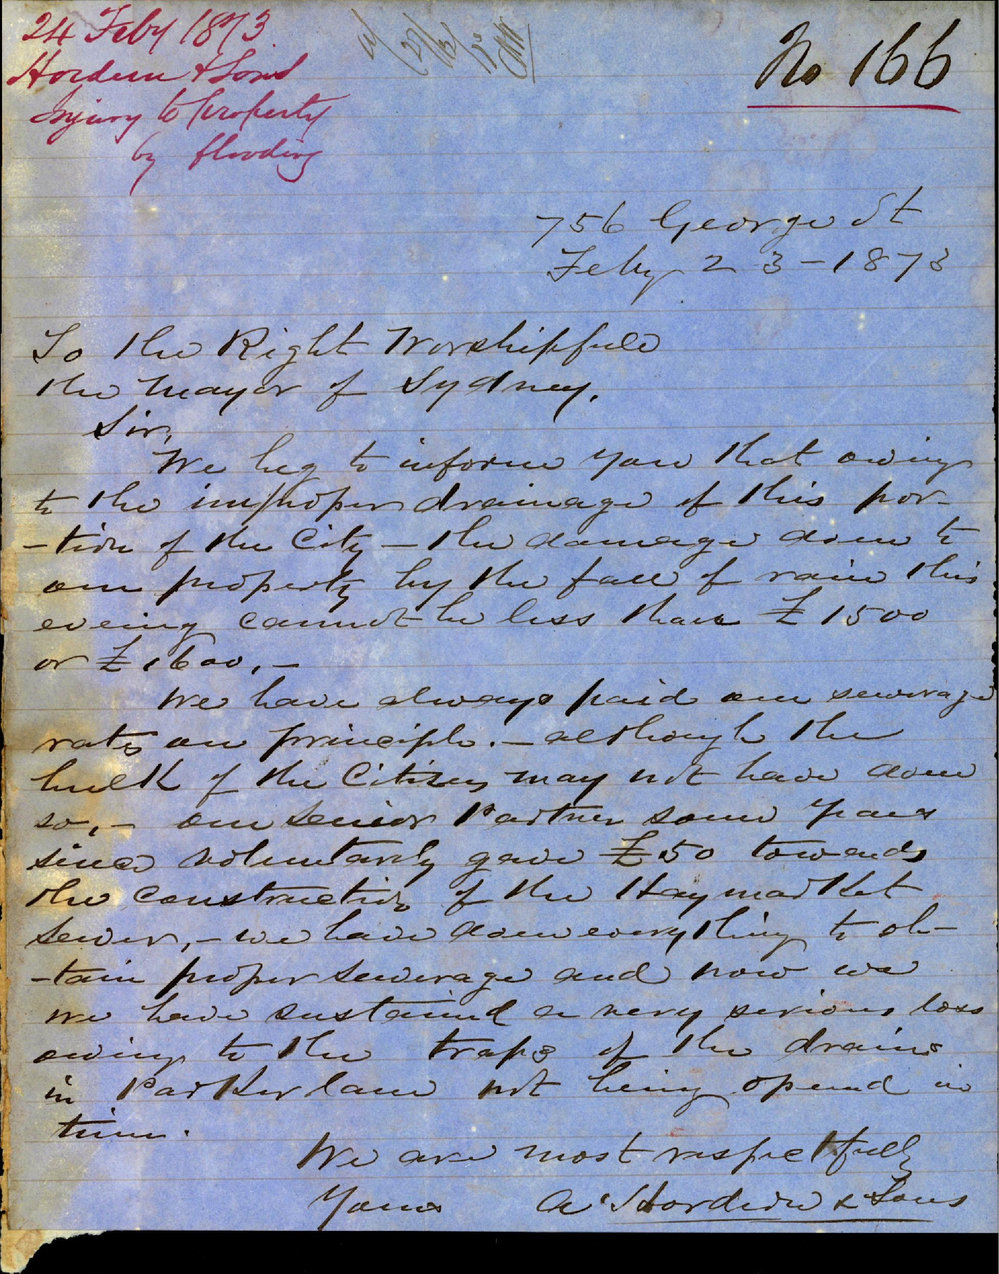 24 Feby 1873
Hordern & Sons
Injury to property
by flooding
No 166
756 George St
Feby 23-1873
To the Right Worshipfull
the Mayor of Sydney.
Sir,
We beg to inform you that owing
to the improper drainage of this por-
-tion of the City - the damage done to
our property by the fall of rain this
evening cannot be less than £1500
or £1600.-
We have always paid our sewerage
rates on principle. - although the
bulk of the Citizens may not have done
so, - our senior Partner some years
since voluntarily gave £50 towards
the construction of the Haymarket
Sewer, - we have done everything to ob-
-tain proper sewerage and now we
we have sustained a very serious loss
owing to the traps of the drains
in Parker lane not being opened in
time.
We are most respectfully
Yours A. Hordern & Sons